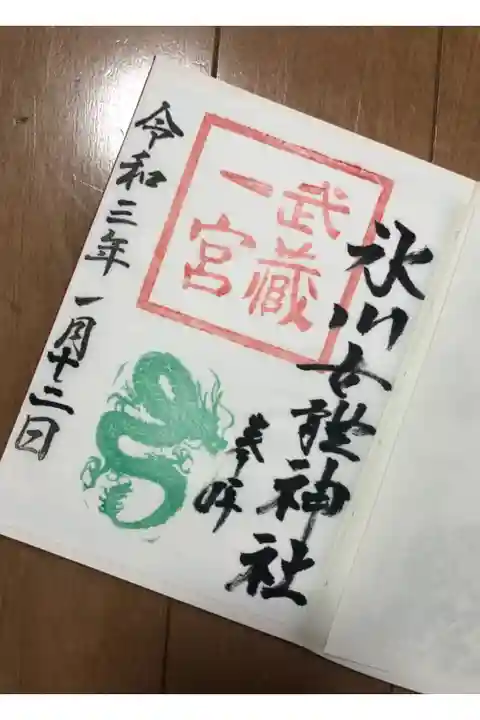 氷川女體神社
武蔵
一宮
参拝
令和三年一月十二日